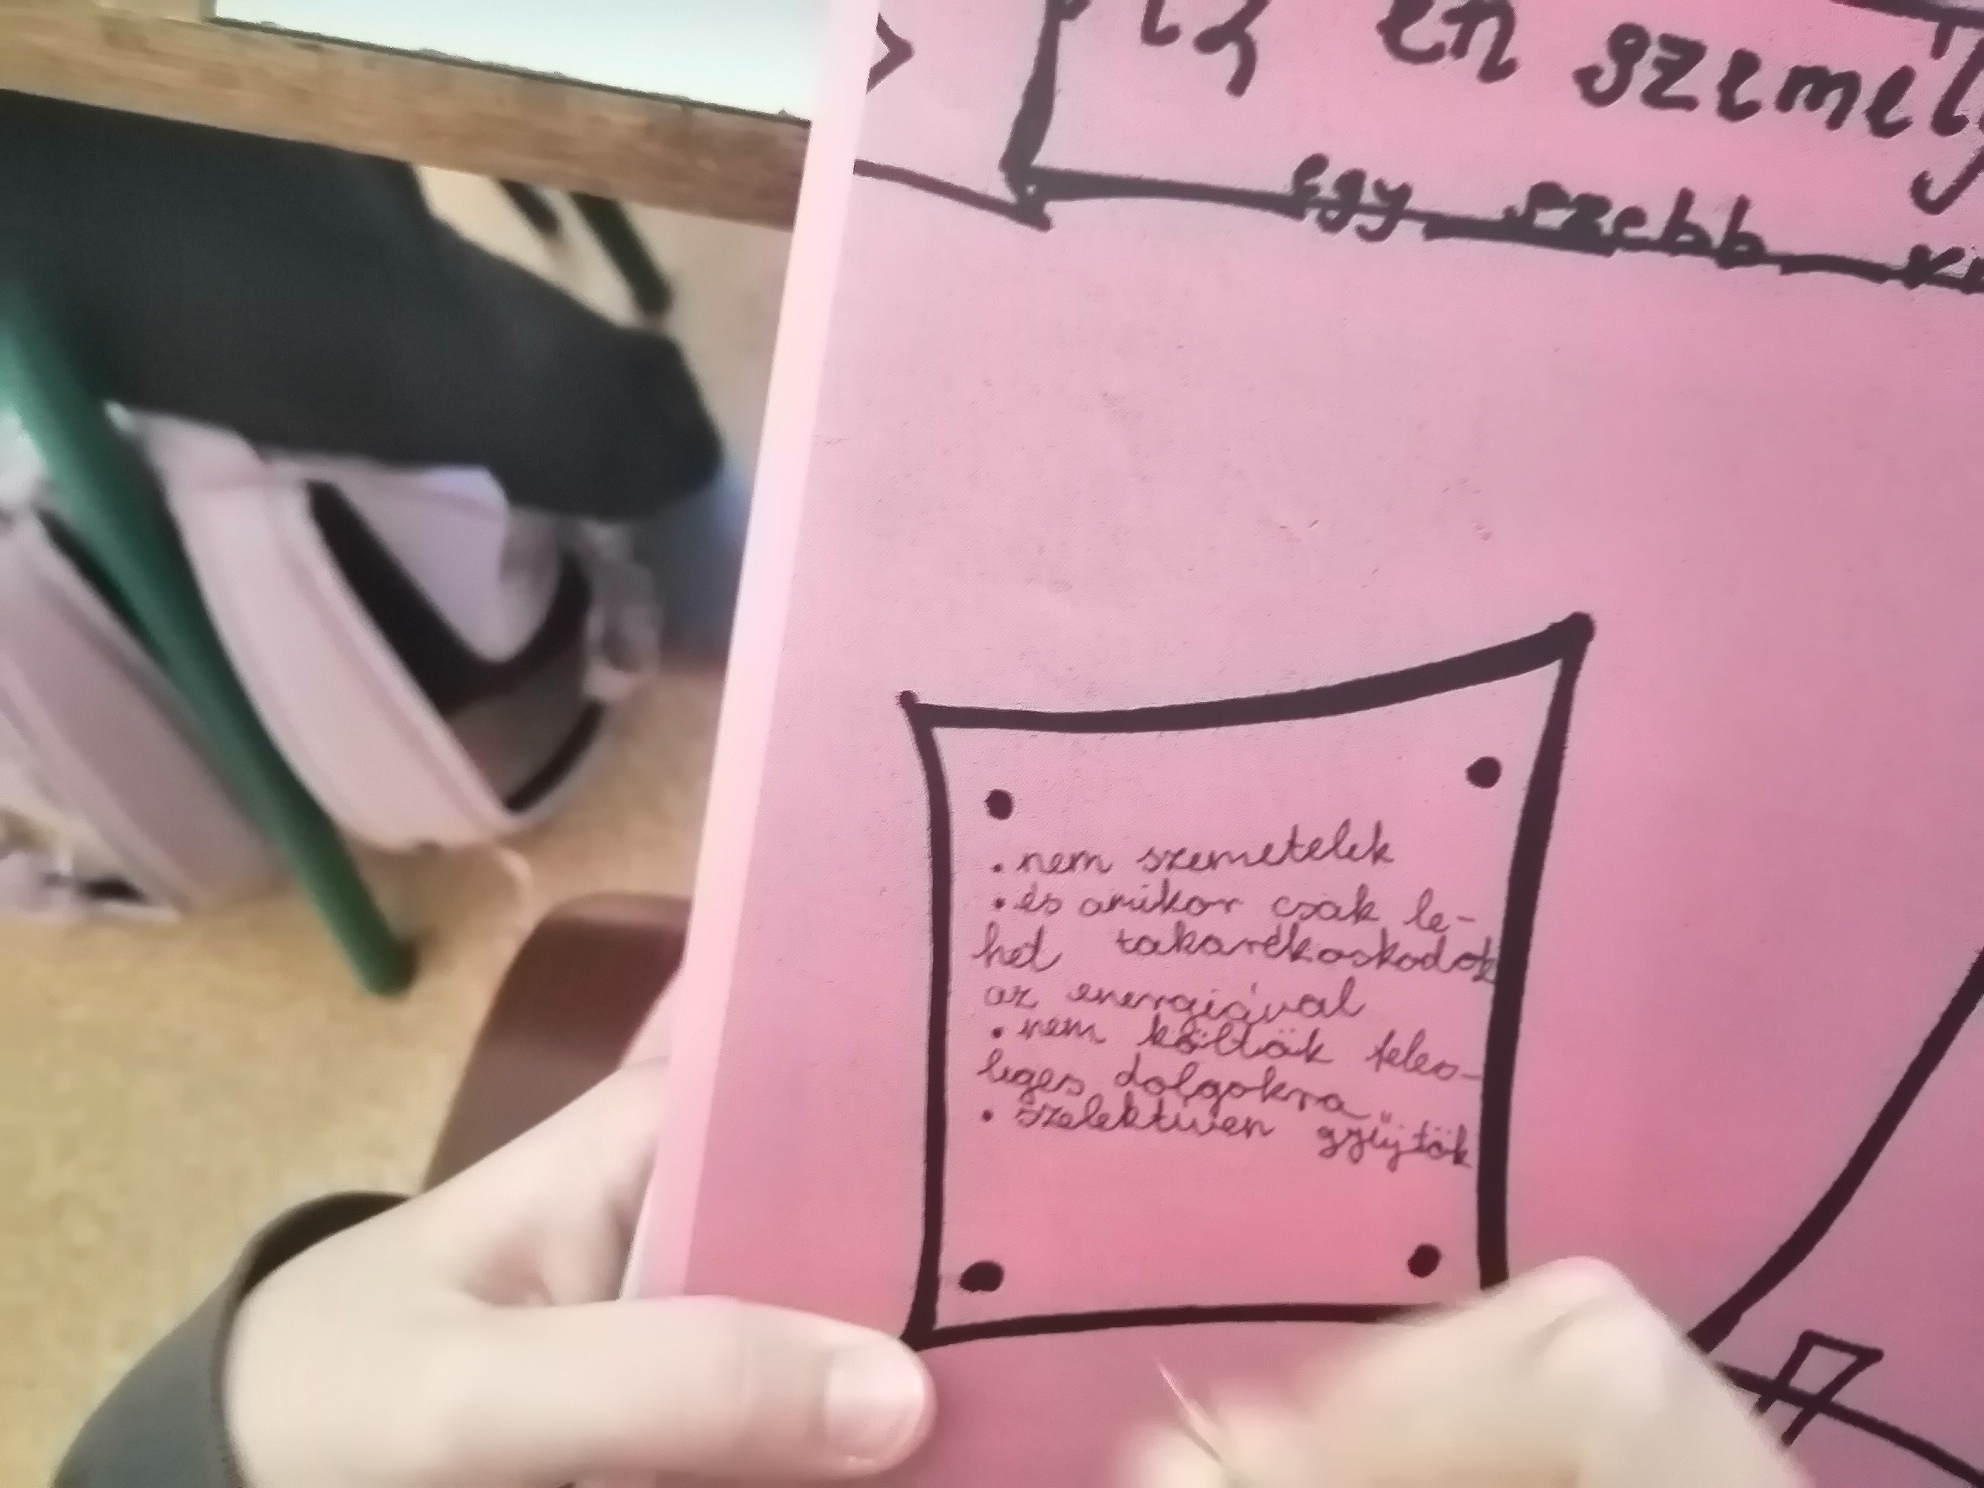 én személ
egy szebb
• nem szemetelek
• és amikor csak le-
het takarékoskodok
az energiával
• nem költök feles-
leges dolgokra
• szelektíven gyűjtök